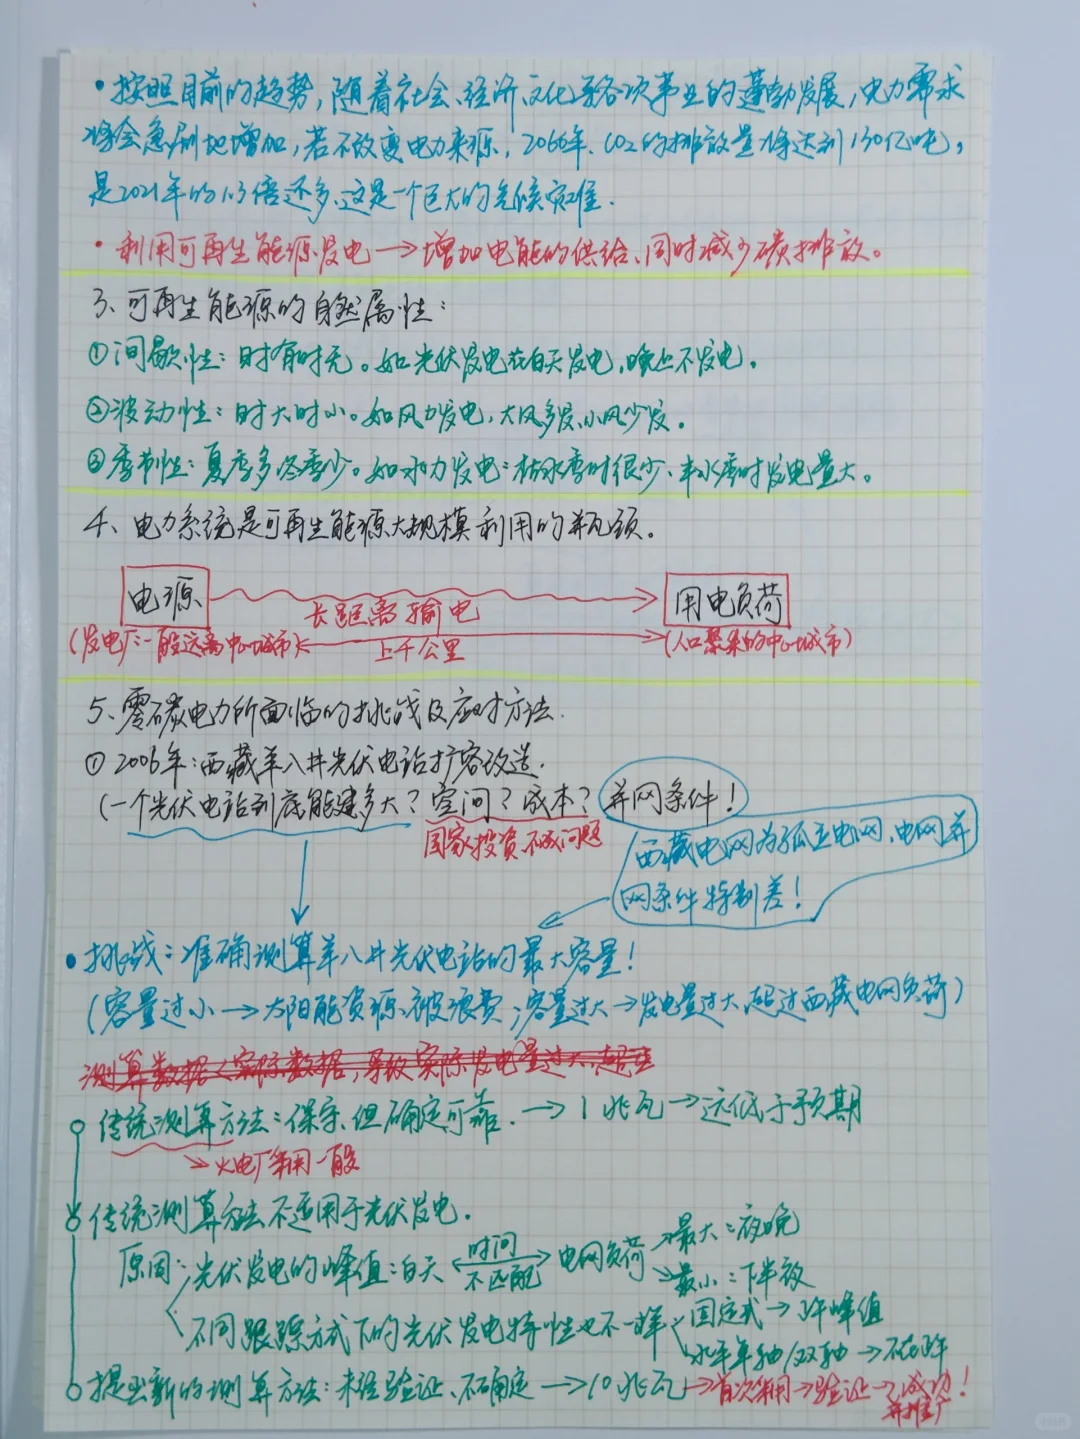 • 按照目前的趋势,随着社会、经济、文化等各项事业的蓬勃发展,电力需求
将会急剧地增加,若不改变电力来源,2066年、CO2的排放量将达到130亿吨,
是2021年的1.3倍还多,这是一个巨大的气候灾难.
• 利用可再生能源发电→增加电能的供给、同时减少碳排放。
3、可再生能源的自然属性:
①间歇性:时有时无。如光伏发电在白天发电,晚上不发电。
②波动性:时大时小。如风力发电,大风多发,小风少发。
③季节性:夏季多冬季少。如水力发电:枯水季时很少、丰水季时发电量大。
4、电力系统是可再生能源大规模利用的瓶颈。
电源 长距离输电 用电负荷
(发电厂:一般远离中心城市) 上千公里 (人口聚集的中心城市)
5、零碳电力所面临的挑战及应对方法.
① 2006年:西藏羊八井光伏电站扩容改造.
(一个光伏电站到底能建多大?空间?成本?并网条件!
国家投资、不成问题
西藏电网为孤立电网、电网并
网条件特别差!
• 挑战:准确测算羊八井光伏电站的最大容量!
(容量过小→太阳能资源被浪费;容量过大→发电量过大、超过西藏电网负荷)
测算数据<实际数据,导致实际发电量过大、超
传统测算方法:保守、但确定可靠.→1兆瓦→远低于预期
→火电厂等用一般
传统测算方法不适用于光伏发电.
原因:光伏发电的峰值:白天 时间不匹配 电网负荷 最大:夜晚
最小:下半夜
不同跟踪方式下的光伏发电特性也不一样 固定式→1个峰值
水平单轴/双轴→不一样
提出新的测算方法:未经验证、不确定→10兆瓦→首次采用→验证→成功!
并推广